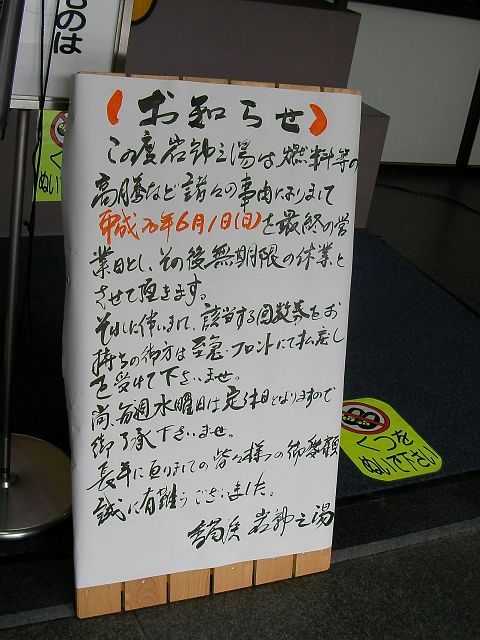 ものは
(お知らせ)
この度岩神之湯は燃料等の
高騰など諸々の事由によりまして
平成20年6月1日(日)を最終の営
業日とし、その後無期限の休業と
させて頂きます。
それに伴いまして、該当する回数券をお
持ちの御方は至急フロントにて払戻し
を受けて下さいませ。
尚、毎週水曜日は定休日となりますので
御了承下さいませ。
長年に亘りましての皆々様の御愛顧
誠に有難うございました。
岩神之湯
くつを
ぬいで下さい
くつ
ぬいで